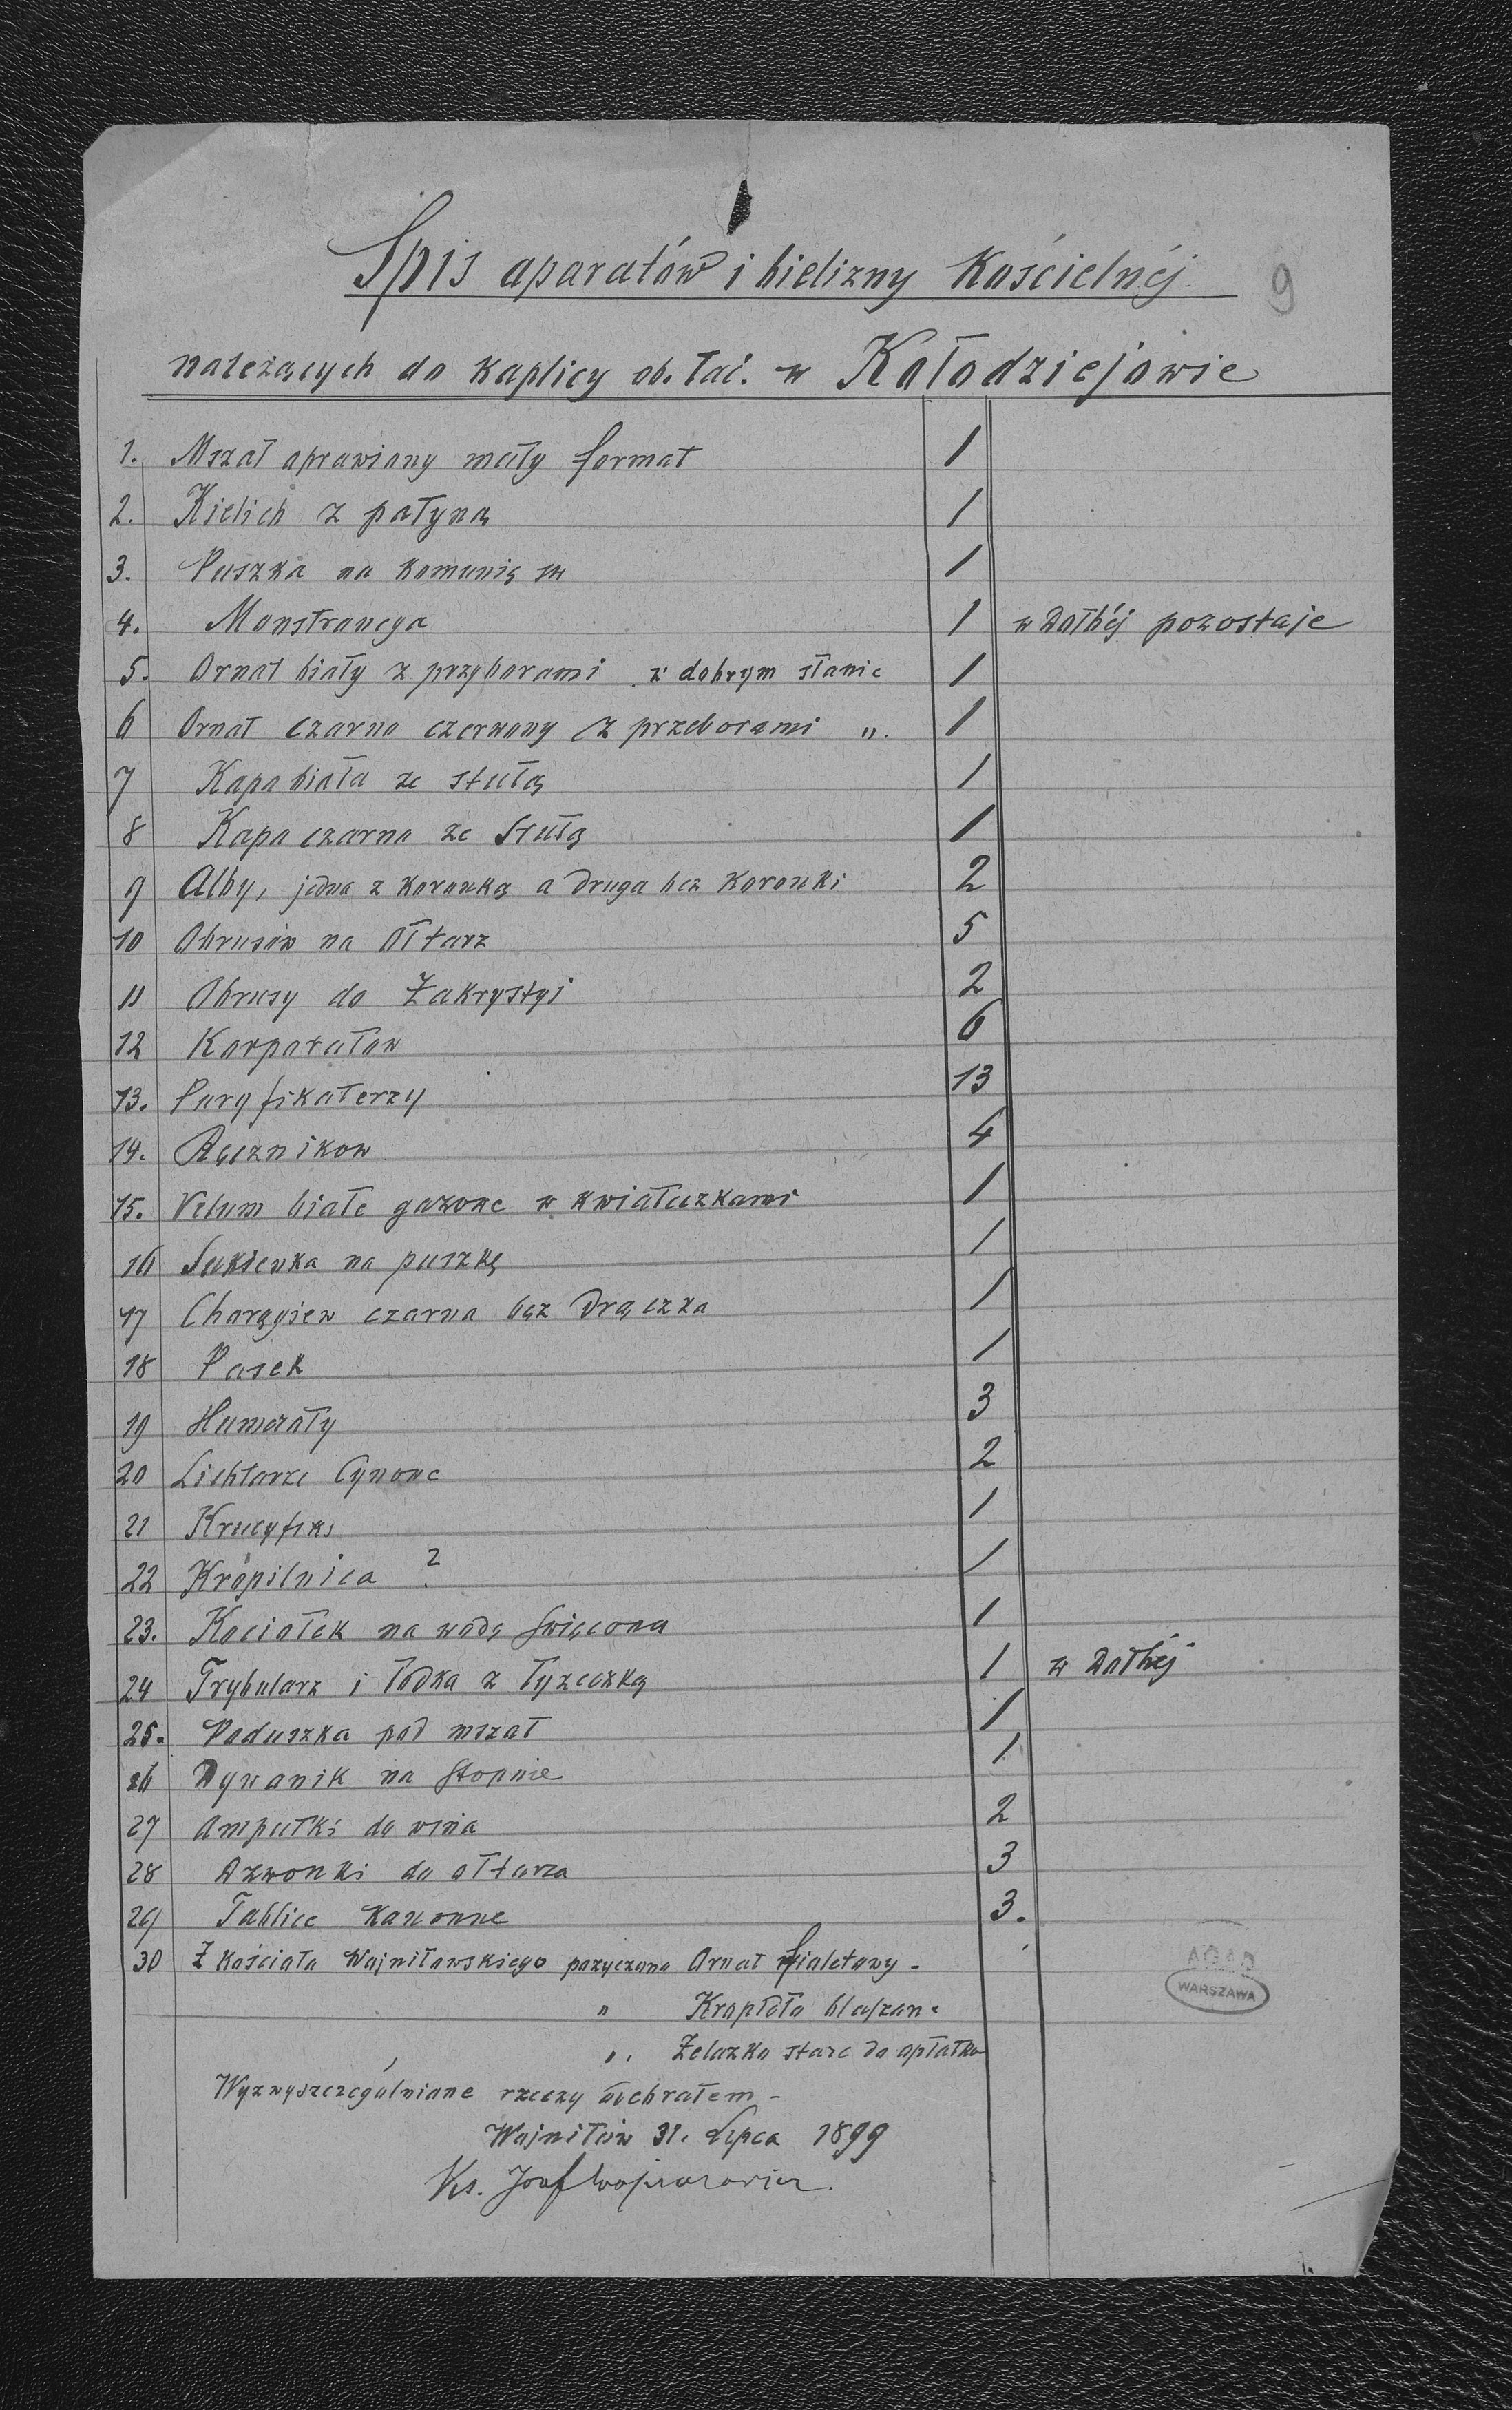 Spis aparatów i bielizny Kościelnéj
9
należących do kaplicy ob. łać. w Kołodziejowie
1. Mszał oprawiany mały format 1
2. Kielich z patyną 1
3. Puszka na Komunię św 1
4. Monstrancya 1 w Dołhéj pozostaje
5. Ornat biały z przyborami w dobrym stanie 1
6 Ornat czarno czerwony z przyborami ". 1
7 Kapa biała ze stułą 1
8 Kapa czarna ze Stułą 1
9 Alby, jedna z koronką a druga bez koronki 2
10 Obrusów na Ołtarz 5
11 Obrusy do Zakrystyi 2
12 Korporałow 6
13. Puryfikaterzy 13
14. Ręcznikow 4
15. Velum białe gazowe w kwiateczkami 1
16 Sukienka na puszkę 1
17 Charągiew czarna bez Drączka 1
18 Pasek 1
19 Humerały 3
20 Lichtarze Cynowe 2
21 Krucyfiks 1
22 Kropilnica ? 1
23. Kociołek na wodę święcona 1
24 Trybularz i łodka z łyzeczką 1 w Dołhéj
25. Poduszka pod mszał 1
26 Dywanik na Stopnie 1
27 Ampułki do wina 2
28 Dzwonki do ołtarza 3
29 Tablice Kanonne 3.
30 Z kościoła Wojniłowskiego pozyczono Ornat fialetowy -
" Kropidło blaszane
". Zelazko stare do opłatkow
Wyzwyszczególniane rzeczy odebrałem -
Wojniłów 31. Lipca 1899
Ks. Josef
AGAD
WARSZAWA